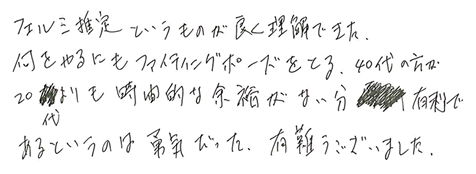 フェルミ推定というものが良く理解できた.
何をやるにもファイティングポーズをとる. 40代の方が
20代よりも時間的な余裕がない分 有利で
あるというのは勇気だった. 有難うございました.